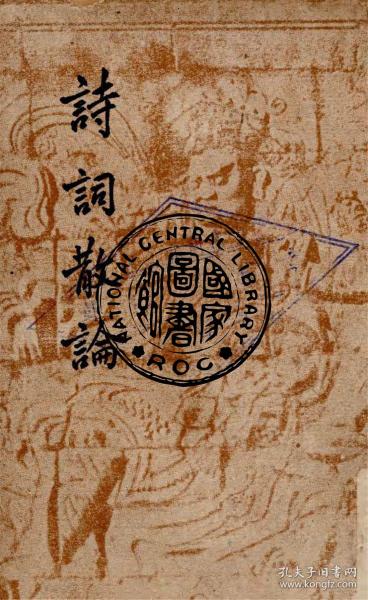 詩詞散論
NATIONAL CENTRAL LIBRARY
國家圖書館
ROC
孔夫子旧书网
www.kongfz.com